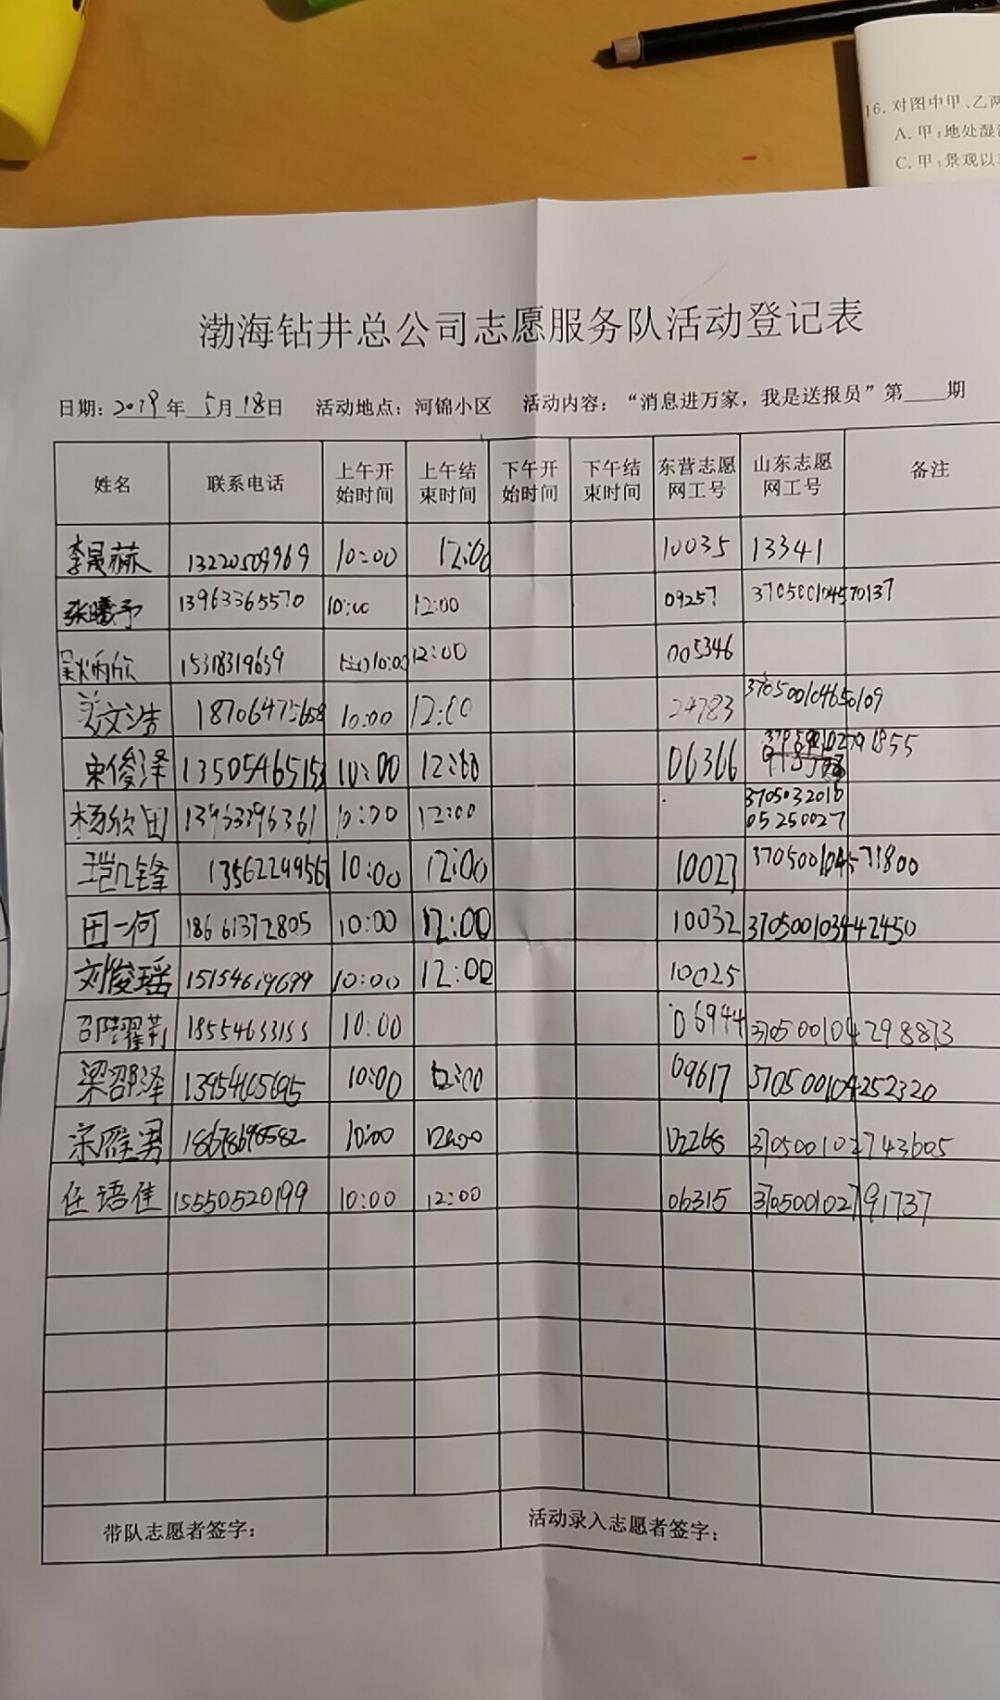 16. 对图中甲、乙两
A. 甲:地处湿
C. 甲:景观以
渤海钻井总公司志愿服务队活动登记表
日期: 2019 年 5月 18日 活动地点: 河锦小区 活动内容: “消息进万家，我是送报员”第____期
姓名 联系电话 上午开始时间 上午结束时间 下午开始时间 下午结束时间 东营志愿网工号 山东志愿网工号 备注
李晟赫 13220509969 10:00 12:00 10035 13341
张曦予 13963365570 10:00 12:00 09257 370500104570137
15318319639 10:00 12:00 005346
姜文浩 18706475658 10:00 12:00 24783 370500104650109
宋俊泽 13505465153 10:00 12:00 06366
杨欣田 13963396361 10:00 12:00 370503201605250027
锋 13562249567 10:00 12:00 10023 370500104571800
田一何 18661372805 10:00 12:00 10032 370500103442450
刘俊瑶 15154619699 10:00 12:00 10025
邵 18554633155 10:00 06944 370500104298873
梁邵泽 13954605695 10:00 12:00 09617 370500104252320
宋雁男 18678696582 10:00 12:00 02268 370500102743605
任语佳 15550520199 10:00 12:00 06315 370500102791737
带队志愿者签字: 活动录入志愿者签字: